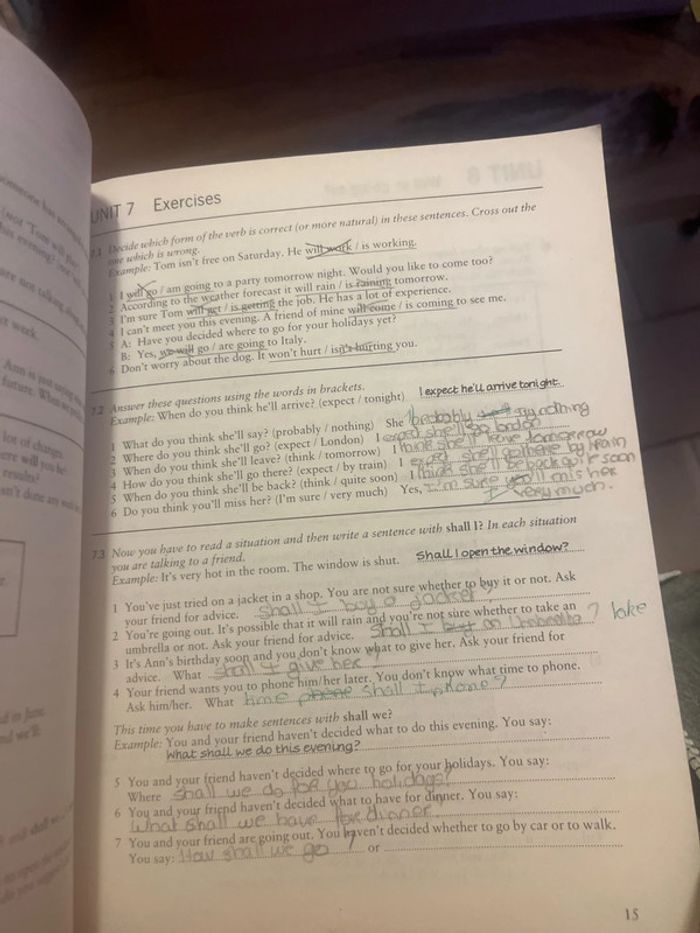 UNIT 7 Exercises
7.1 Decide which form of the verb is correct (or more natural) in these sentences. Cross out the
one which is wrong.
Example: Tom isn't free on Saturday. He will work / is working.
1 I will go / am going to a party tomorrow night. Would you like to come too?
2 According to the weather forecast it will rain / is raining tomorrow.
3 I'm sure Tom will get / is getting the job. He has a lot of experience.
4 I can't meet you this evening. A friend of mine will come / is coming to see me.
5 A: Have you decided where to go for your holidays yet?
B: Yes, we will go / are going to Italy.
6 Don't worry about the dog. It won't hurt / isn't hurting you.
7.2 Answer these questions using the words in brackets.
Example: When do you think he'll arrive? (expect / tonight) I expect he'll arrive tonight.
1 What do you think she'll say? (probably / nothing) She probably say nothing
2 Where do you think she'll go? (expect / London) I expect she'll go london
3 When do you think she'll leave? (think / tomorrow) I think she'll leave tomorrow
4 How do you think she'll go there? (expect / by train) I expect she'll go there by train
5 When do you think she'll be back? (think / quite soon) I think she'll be back quite soon
6 Do you think you'll miss her? (I'm sure / very much) Yes, I'm sure you'll miss her
very much.
7.3 Now you have to read a situation and then write a sentence with shall I? In each situation
you are talking to a friend.
Example: It's very hot in the room. The window is shut. Shall I open the window?
1 You've just tried on a jacket in a shop. You are not sure whether to buy it or not. Ask
your friend for advice. Shall I buy a jacket?
2 You're going out. It's possible that it will rain and you're not sure whether to take an
umbrella or not. Ask your friend for advice. Shall I an Umbrella ? take
3 It's Ann's birthday soon and you don't know what to give her. Ask your friend for
advice. What shall I give her ?
4 Your friend wants you to phone him/her later. You don't know what time to phone.
Ask him/her. What time phone shall I phone?
This time you have to make sentences with shall we?
Example: You and your friend haven't decided what to do this evening. You say:
What shall we do this evening?
5 You and your friend haven't decided where to go for your holidays. You say:
Where shall we do for you holidays?
6 You and your friend haven't decided what to have for dinner. You say:
What shall we have for dinner.
7 You and your friend are going out. You haven't decided whether to go by car or to walk.
You say: How shall we go ? or
15